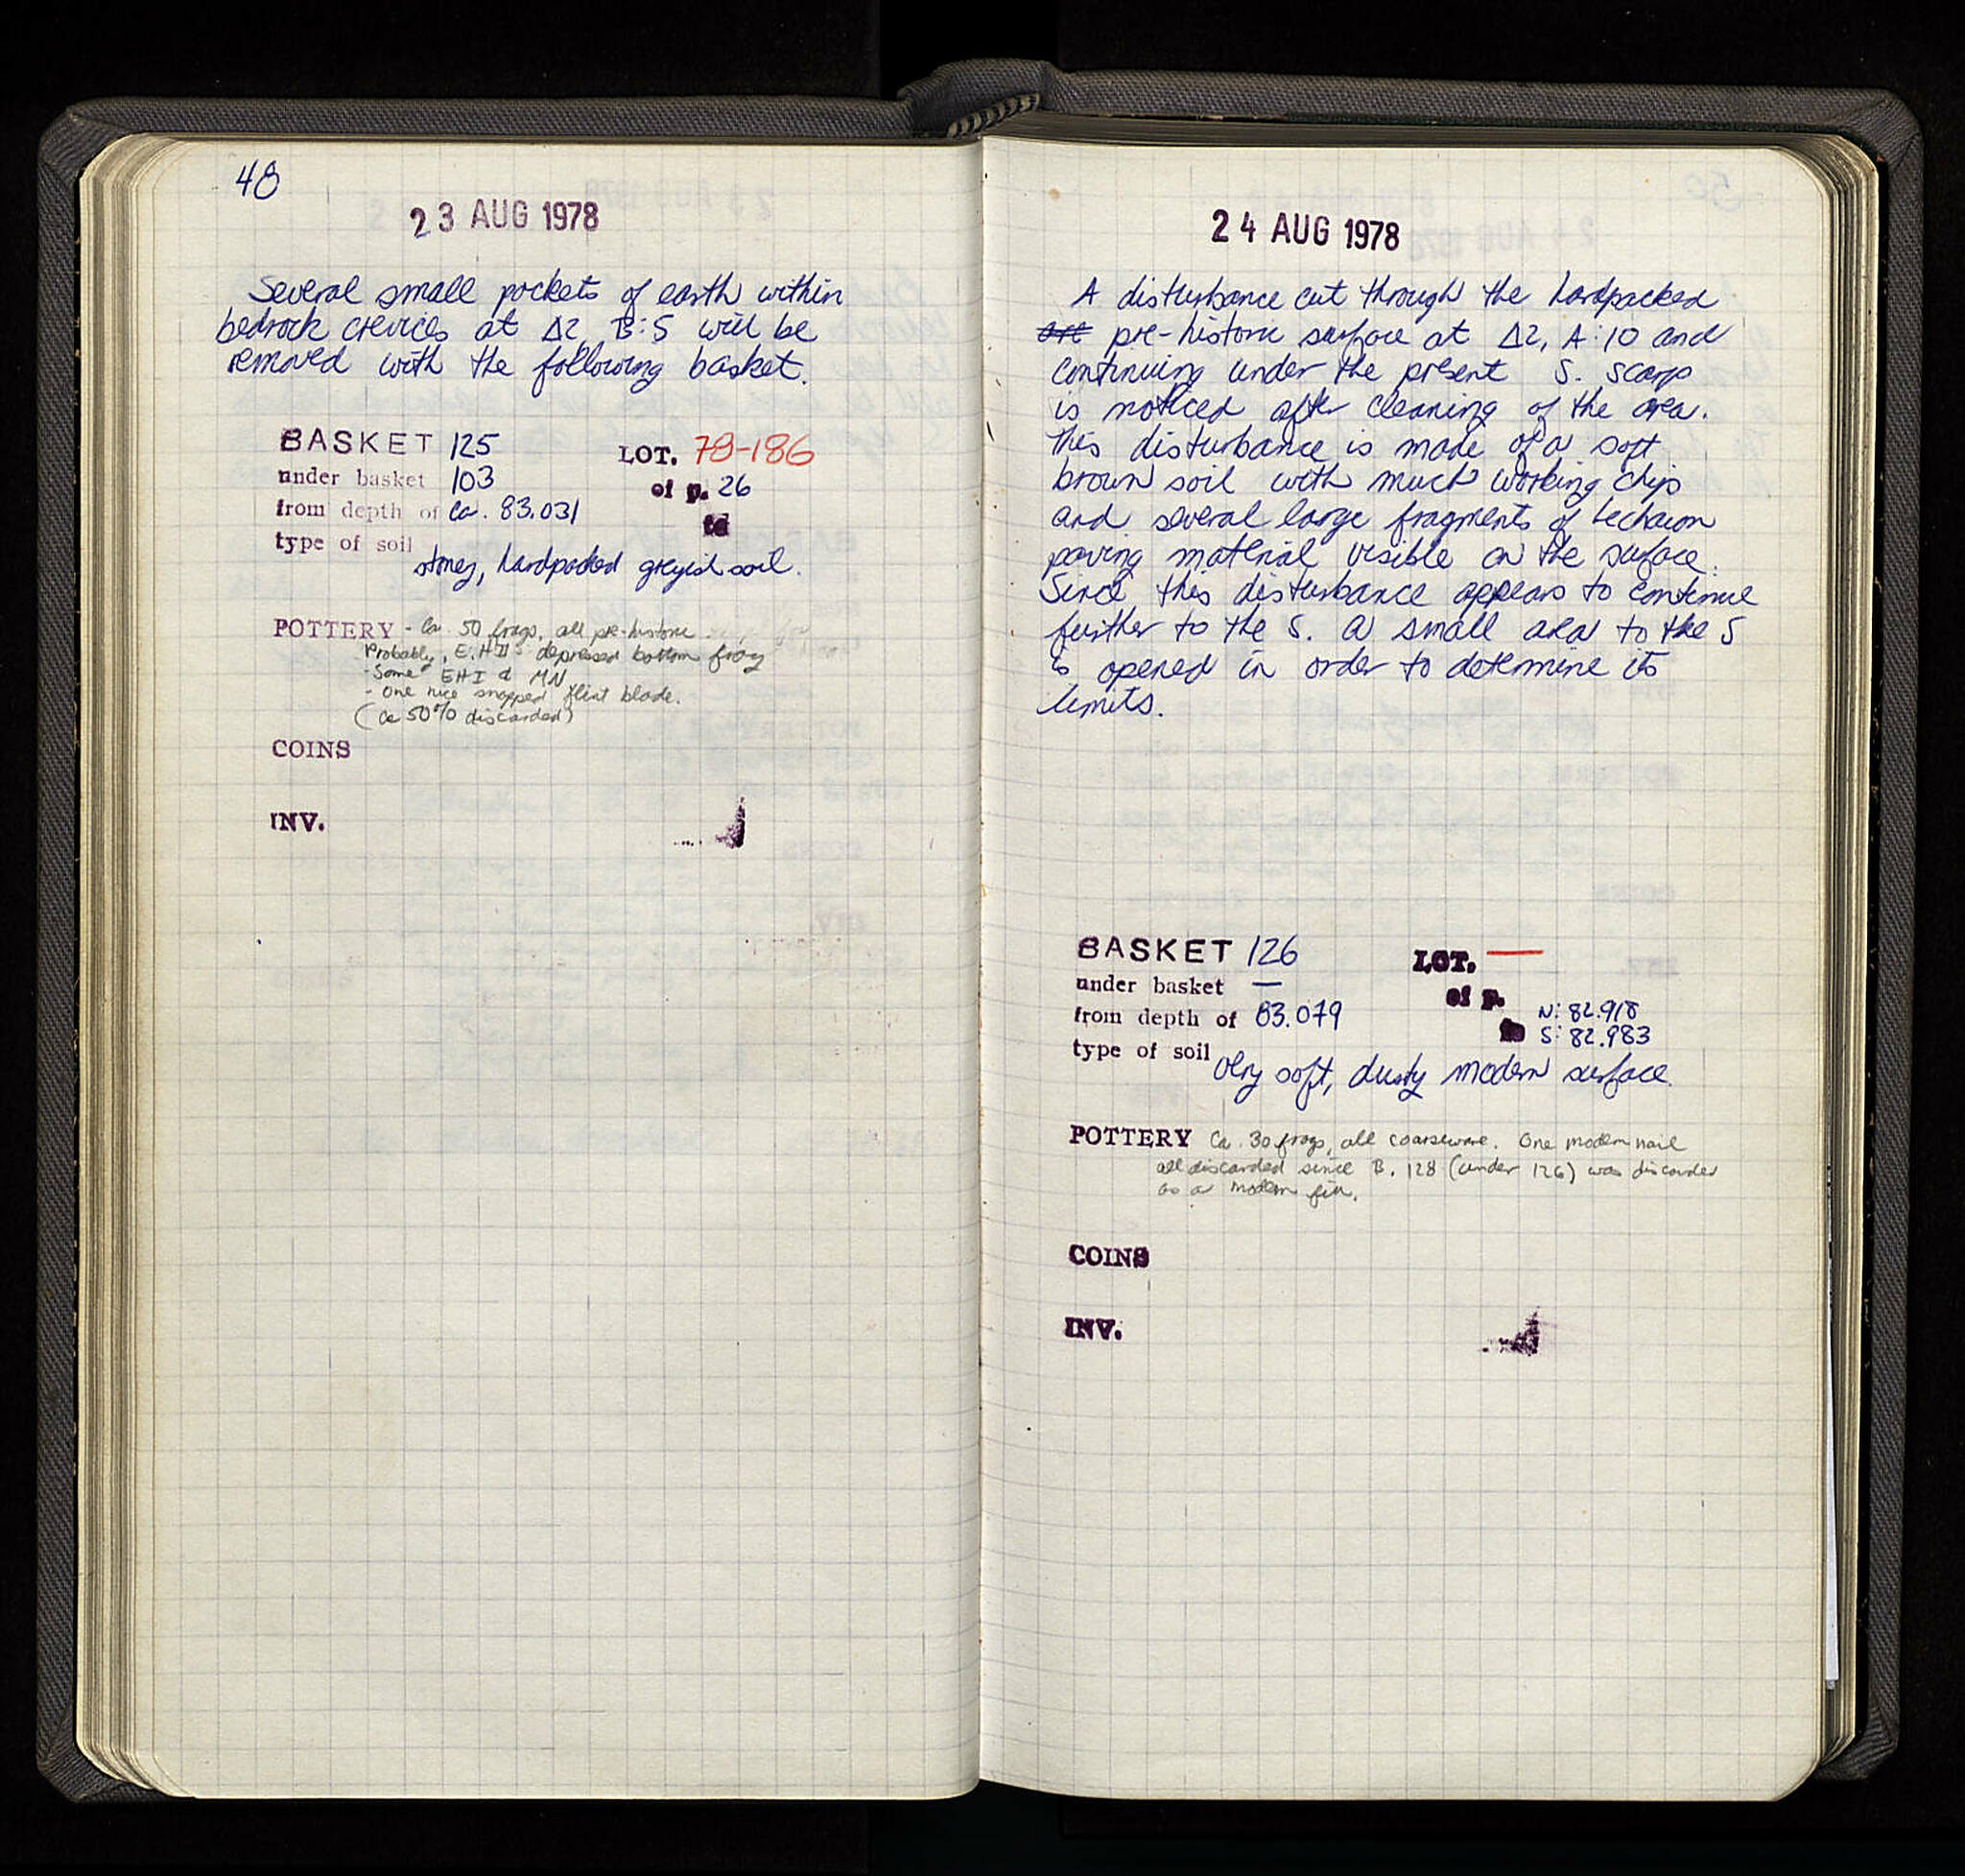 48
23 AUG 1978
Several small pockets of earth within
bedrock crevices at Δ2, B:5 will be
removed with the following basket.
BASKET 125 LOT. 78-186
under basket 103 of p. 26
from depth of ca. 83.031 to
type of soil
stoney, hardpacked greyish soil.
POTTERY - Ca. 50 frags, all pre-historic
Probably, E.H II depressed bottom frag
- Some EHI & MN
- One nice snapped flint blade.
(Ca 50% discarded)
COINS
INV.
24 AUG 1978
A disturbance cut through the hardpacked
pre-historic surface at Δ2, A:10 and
continuing under the present S. scarp
is noticed after cleaning of the area.
This disturbance is made of a soft
brown soil with much working chip
and several large fragments of Lechaion
paving material visible on the surface.
Since this disturbance appears to continue
further to the S. a small area to the S
is opened in order to determine its
limits.
BASKET 126 LOT. —
under basket — of p.
from depth of 83.079 to N: 82.918
S: 82.983
type of soil
Very soft, dusty modern surface.
POTTERY Ca. 30 frags, all coarseware. One modern nail
all discarded since B. 128 (under 126) was discarded
as a modern fill.
COINS
INV.